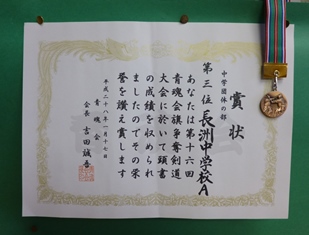 賞状
中学団体の部
第三位 長洲中学校A
あなたは第十六回
青魂会旗争奪剣道
大会に於いて頭書
の成績を収められ
ましたのでその栄
誉を讃え賞します
平成二十八年一月十七日
青魂会
会長 吉田誠吾